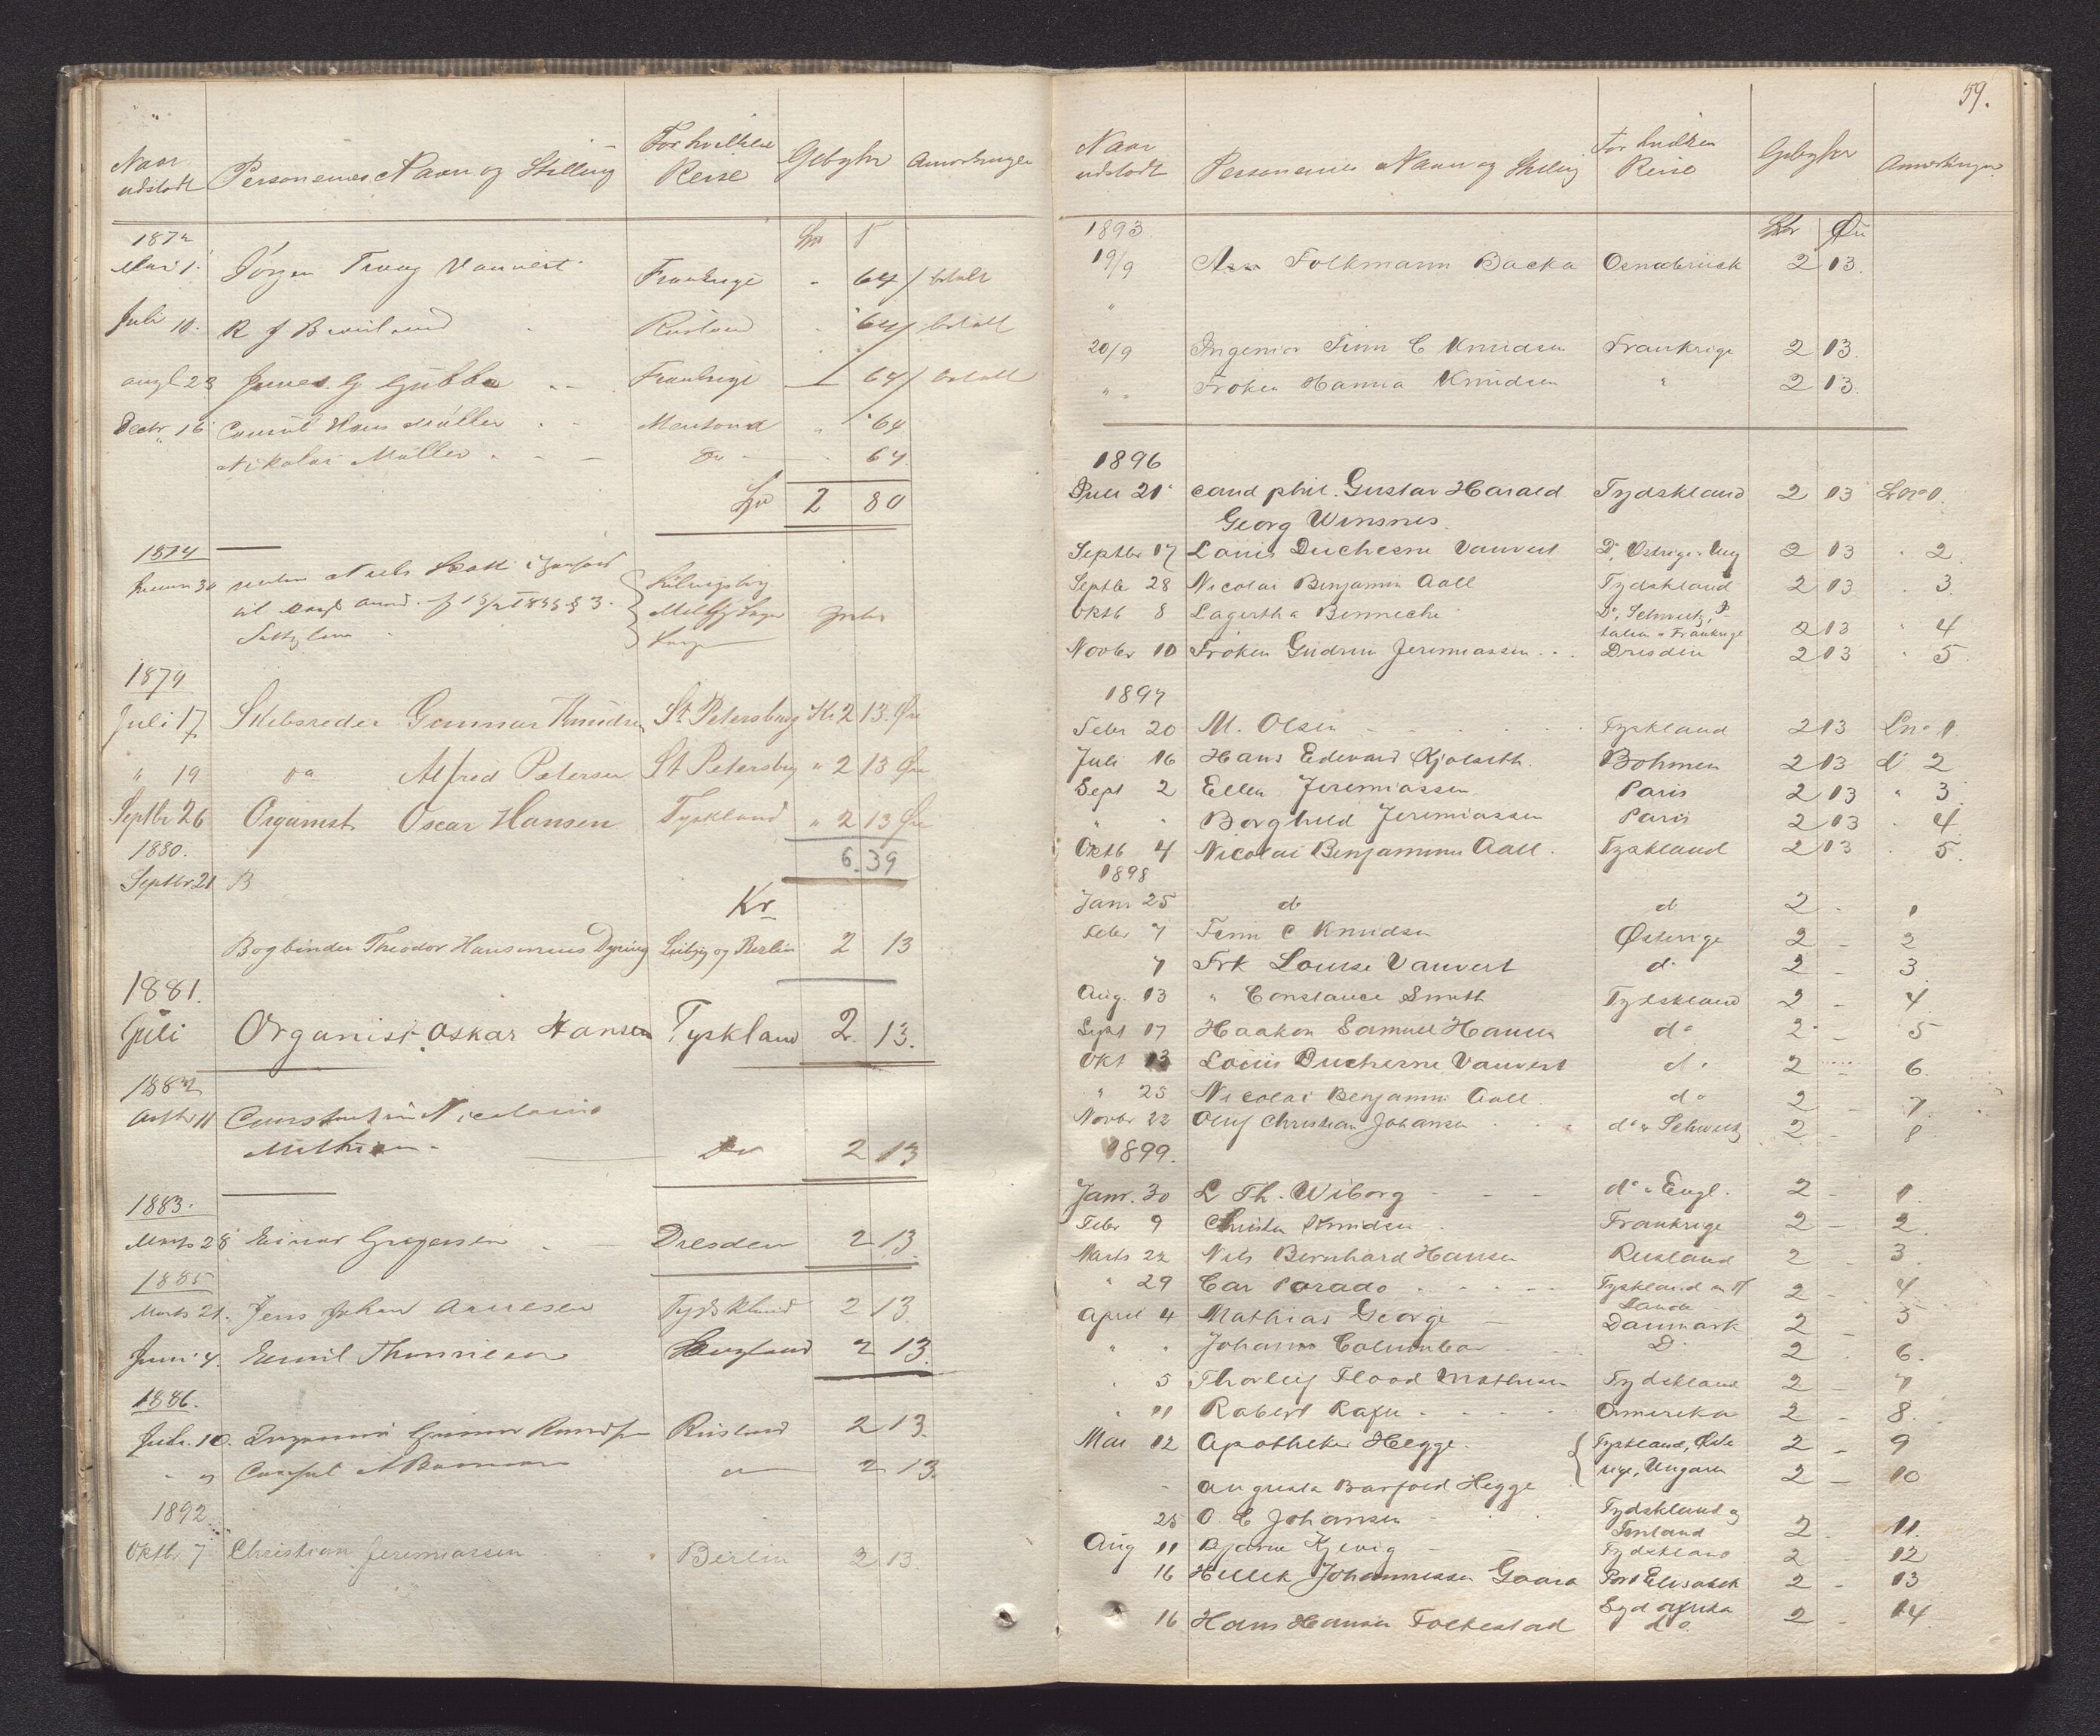 Naar udstedt Personernes Navn og Stilling For hvilken Reise Gebyhr Anmerkninger
1872
Mai 1. Jørgen Vauvert Frankrige " 64 / betalt
Juli 10. R J Rusland " 64 / betalt
Augt 23 James G Gubba Frankrige 64 / betalt
Dectr 16 Consul Hans Møller " 64
Nikolai Møller Do 64
Spd 2 80
1874
30 Niels
1879
Juli 17 Skibsreder Gunnar Knudsen St Petersburg Kr 2 13 Øre
" 19 do Alfred Petersen St Petersbrg " 2 13 Øre
Septbr 26 Organist Oscar Hansen Tyskland " 2 13 Øre
1880. 6.39
Septbr 21 B
Kr
Bogbinder Theodor Dyring Leibzig og Berlin 2 13
1881.
Juli Organist Oskar Hansen Tyskland 2. 13.
1882
11 Constantin Nicolai
Do 2 13
1883.
Marts 28 Einar Gregersen Dresden 2 13.
1885
Marts 21. Jens Johan Aanesen Tydskland 2 13.
Juni 4. Emil England 2 13.
1886.
10. Ingeniør Gunnar Knudsen Rusland 2 13.
" " Consul 2 13.
1892
Oktbr 7 Christian Jeremiassen Berlin 2 13
59.
Naar udstedt Personernes Navn og Stilling For hvilken Reise Gebyhr Anmerkninger
1893. Kr Øre
19/9 Folkmann Backa Osnabrück 2 13.
"
20/9 Ingeniør Finn C Knudsen Frankrige 2 13.
" " Frøken Hanna Knudsen " 2 13.
1896
Juli 21 cand phil. Gustav Harald Tydskland 2 13 Lno 1.
Georg Winsnes.
Septbr 17 Louis Duchesne Vauvert Do, Østrige, Ung 2 13 " 2
Septbr 28 Nicolai Benjamin Aall Tydskland 2 13 " 3.
Oktb 8 Lagertha Benneche Do, Schweitz, I-
talien & Frankrige 2 13 " 4
Novbr 10 Frøken Gudrun Jeremiassen Dresden 2 13 " 5
1897
Febr 20 M. Olsen Tyskland 2 13 Lno 1.
Juli 16 Hans Edevard Kjølseth. Bøhmen 2 13 d 2
Sept 2 Ellen Jeremiassen Paris 2 13 " 3
" " Borghild Jeremiassen Paris 2 13 " 4
Oktb 4 Nicolai Benjamin Aall. Tyskland 2 13 " 5.
1898
Janr 25 do do 2 1
Febr 7 Finn C Knudsen Østerrige 2 - 2
7 Frk Louise Vauvert do 2 - 3.
Aug. 13 " Constance Smith Tydskland 2 - 4
Sept 17 Haakon Samuel Hansen do 2 - 5
Okt 13 Louis Duchesne Vauvert do 2 - 6.
" 25 Nicolai Benjamin Aall do 2 - 7.
Novbr 22 Oluf Christian Johansen do & Schweitz 2 - 8
1899.
Janr. 30 L Th. Wiborg do & Engl. 2 - 1.
Febr 9 Knudsen Frankrige 2 - 2
Marts 22 Nils Bernhard Hansen Rusland 2 - 3.
" 29 Car Parado Tyskland 2 - 4
April 4 Mathias George Danmark 2 - 5
" " Johann Columbar Do 2 - 6.
" 5 Thorleif Flood Mathisen Tydskland 2 - 7
" 11 Robert Amerika 2 - 8.
Mai 12 Apotheker Hegge. Tyskland, Øste 2 - 9
rige, Ungarn
" Augusta Barfoed Hegge 2 - 10
25 O. C Johansen Tydskland og
Finland 2 - 11.
Aug 11 Bjarne Kjevig Tydskland 2 - 12
16 Hellek Johannessen Gaara Port Elisabeth 2 - 13
Syd Afrika
16 Hans Hansen Folkestad do. 2 - 14.